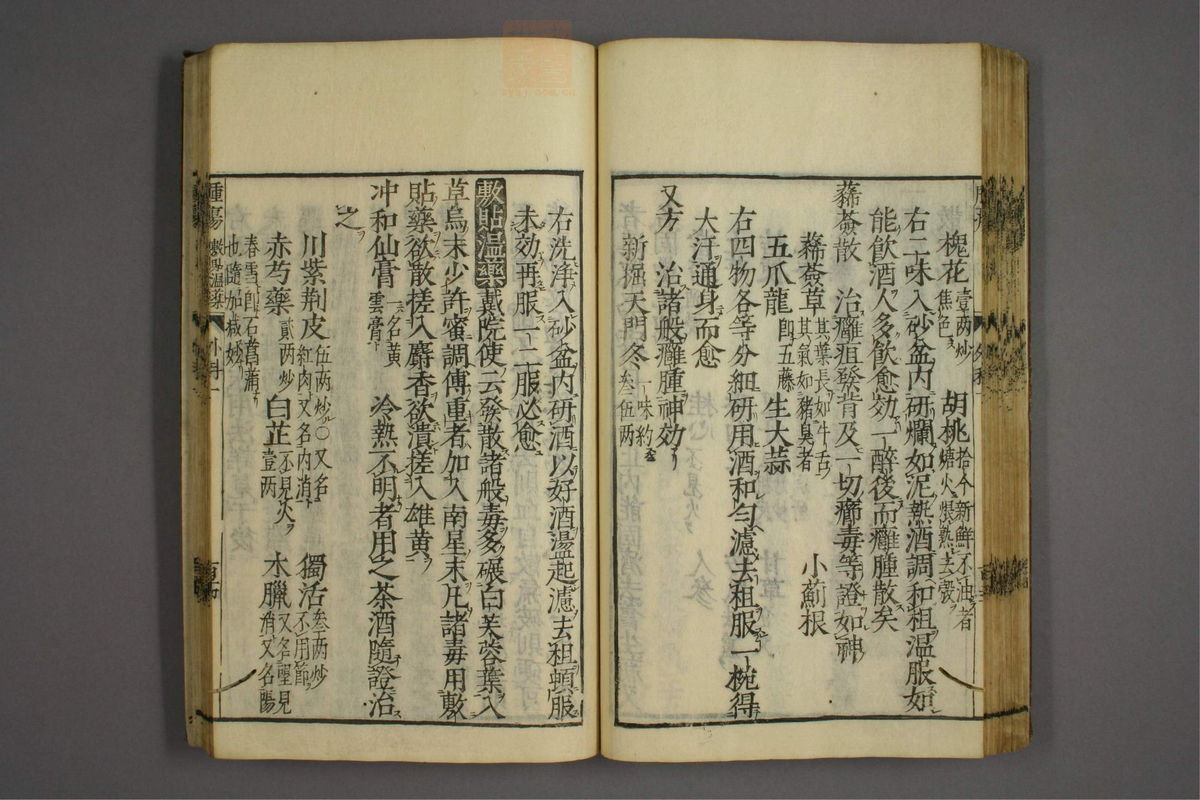 槐花壹两炒焦色 胡桃拾个新鮮不油者煻火煨熟去殼
右二味入砂盆内研爛如泥熱酒調和粗温服如
能飲酒人多飲愈効一醉後而癰腫散矣
蕣薟散 治癰疽發背及一切癤毒等證如神
蕣薟草其葉長如牛舌其氣如猪臭者 小薊根
五爪龍即五藤 生大蒜
右四物各等分細研用酒和匀濾去柤服一椀得
大汗通身而愈
又方 治諸般癰腫神効
新掘天門冬叁伍两一味約
右洗淨入砂盆内研酒以好酒盪起濾去柤頓服
未効再服一二服必愈
敷貼温藥戴院使云發散諸般毒多碾白芙蓉葉入
草烏末少許蜜調傅重者加入南星末凡諸毒用敷
貼藥欲散搓入麝香欲潰搓入雄黄
冲和仙膏一名黄雲膏 冷熱不明者用之茶酒隨證治
之
川紫荆皮伍两炒○又名紅肉又名内消 獨活叁两炒不用節
赤芍藥貳两炒 白芷壹两不見火 木臘又名望見消又名陽
春雪即石菖蒲也隨加減妙
腫瘍 敷貼温藥 外科一